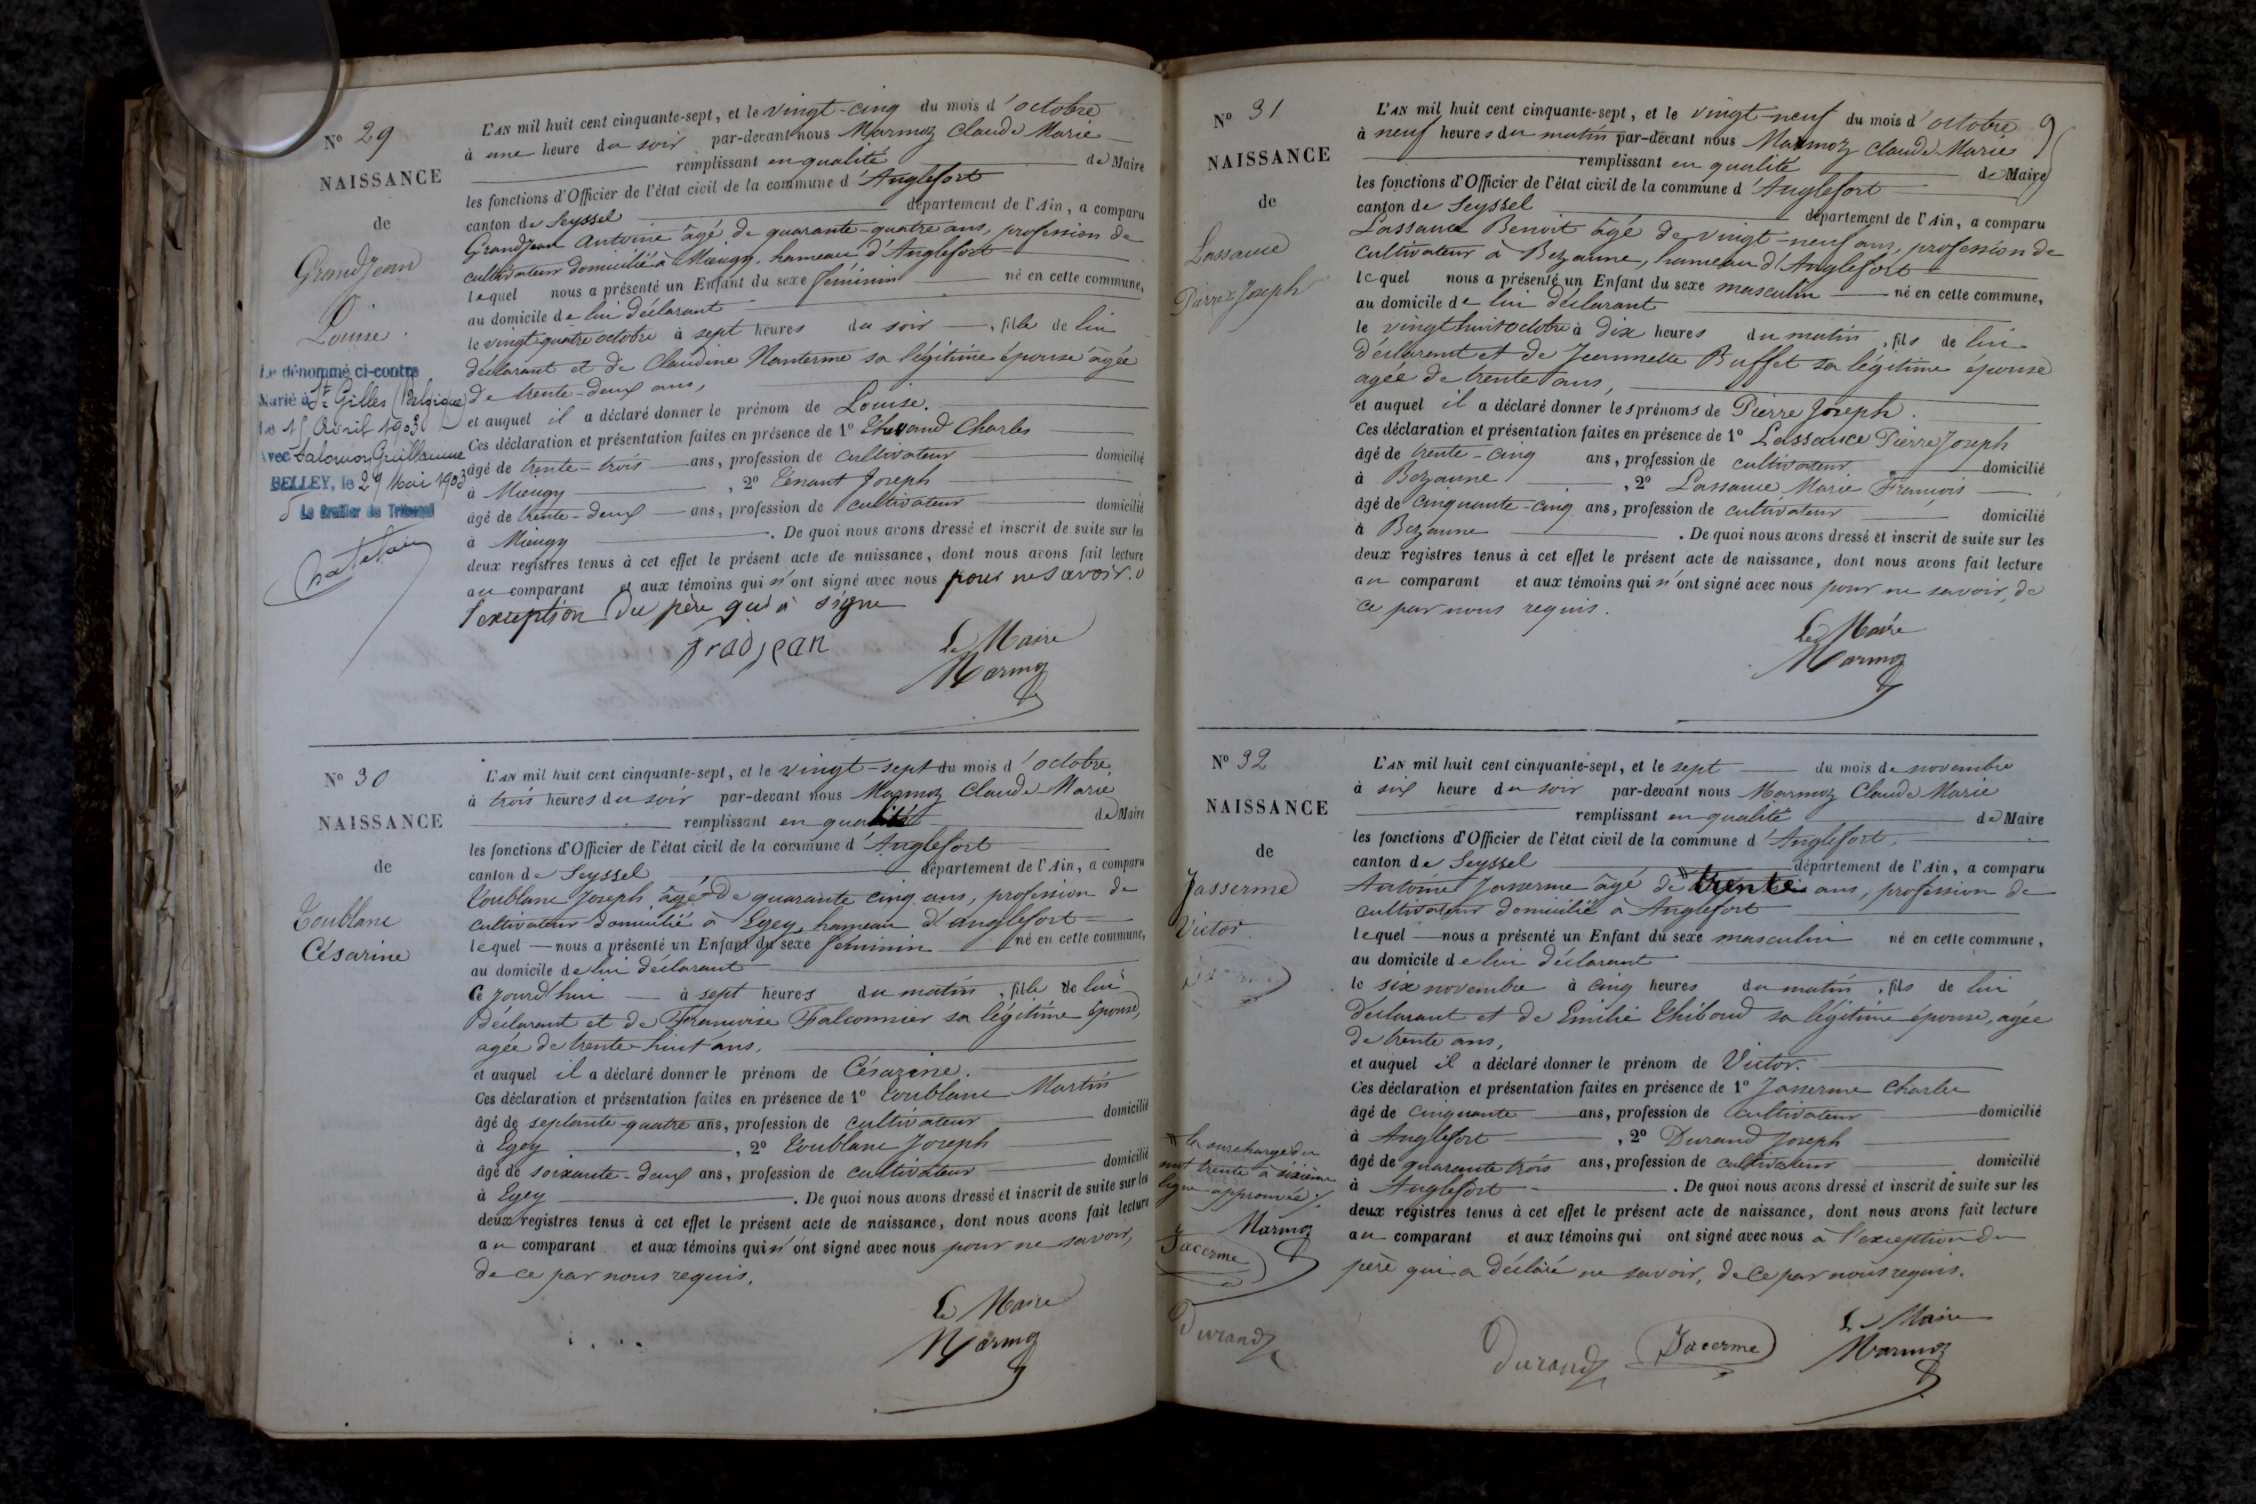 Nº 29
NAISSANCE
de
Grandjean
Louise.
Le dénommé ci-contre
Marié à St Gilles (Belgique)
Le 15 Avril 1903
Avec Salomon Guillaume
BELLEY, le 29 Mai 1903
Le Greffier du Tribunal
L'AN mil huit cent cinquante-sept, et le vingt-cinq du mois d'octobre
à une heure du soir par-devant nous Marmoz Claude Marie
remplissant en qualité de Maire
les fonctions d'Officier de l'état civil de la commune d'Anglefort
canton de Seyssel département de l'Ain, a comparu
Grandjean Antoine âgé de quarante-quatre ans, profession de
cultivateur domicilié à Mieugy, hameau d'Anglefort
lequel nous a présenté un Enfant du sexe féminin né en cette commune,
au domicile de lui déclarant
le vingt quatre octobre à sept heures du soir, fille de lui
déclarant et de Claudine Nanterme sa légitime épouse âgée
de trente-deux ans,
et auquel il a déclaré donner le prénom de Louise.
Ces déclaration et présentation faites en présence de 1º Charles
âgé de trente-trois ans, profession de cultivateur domicilié
à Mieugy, 2º Tenant Joseph
âgé de trente-deux ans, profession de cultivateur domicilié
à Mieugy. De quoi nous avons dressé et inscrit de suite sur les
deux registres tenus à cet effet le présent acte de naissance, dont nous avons fait lecture
au comparant et aux témoins qui n'ont signé avec nous pour ne savoir. à
l'exception du père qui à signe
gradjean
Le Maire
Marmoz
Nº 30
NAISSANCE
de
Toublanc
Césarine
L'AN mil huit cent cinquante-sept, et le vingt-sept du mois d'octobre,
à trois heures du soir par-devant nous Marmoz Claude Marie
remplissant en qualité de Maire
les fonctions d'Officier de l'état civil de la commune d'Anglefort
canton de Seyssel département de l'Ain, a comparu
Toublanc Joseph âgé de quarante cinq ans, profession de
cultivateur domicilié à Egey, hameau d'anglefort
lequel nous a présenté un Enfant du sexe féminin né en cette commune,
au domicile de lui déclarant
Ce jourd'hui à sept heures du matin, fille de lui
déclarant et de Francoise Falconnier sa légitime épouse,
agée de trente-huit ans,
et auquel il a déclaré donner le prénom de Césarine.
Ces déclaration et présentation faites en présence de 1º Toublanc Martin
âgé de septante-quatre ans, profession de cultivateur domicilié
à Egey, 2º Toublanc Joseph
âgé de soixante-deux ans, profession de cultivateur domicilié
à Egey. De quoi nous avons dressé et inscrit de suite sur les
deux registres tenus à cet effet le présent acte de naissance, dont nous avons fait lecture
au comparant et aux témoins qui n'ont signé avec nous pour ne savoir,
de ce par nous requis.
Le Maire
Marmoz
9
Nº 31
NAISSANCE
de
Lassauce
Pierre Joseph
L'AN mil huit cent cinquante-sept, et le vingt-neuf du mois d'octobre
à neuf heures du matin par-devant nous Marmoz Claude Marie
remplissant en qualité de Maire
les fonctions d'Officier de l'état civil de la commune d'Anglefort
canton de Seyssel département de l'Ain, a comparu
Lassauce Benoit âgé de vingt-neuf ans, profession de
cultivateur à Bezonne, hameau d'Anglefort
lequel nous a présenté un Enfant du sexe masculin né en cette commune,
au domicile de lui déclarant
le vingt huit octobre à dix heures du matin, fils de lui
déclarant et de Jeannette Buffet sa légitime épouse
agée de trente ans,
et auquel il a déclaré donner les prénoms de Pierre Joseph.
Ces déclaration et présentation faites en présence de 1º Lassauce Pierre Joseph
âgé de trente-cinq ans, profession de cultivateur domicilié
à Bezonne, 2º Lassauce Marie François
âgé de cinquante-cinq ans, profession de cultivateur domicilié
à Bezonne. De quoi nous avons dressé et inscrit de suite sur les
deux registres tenus à cet effet le présent acte de naissance, dont nous avons fait lecture
au comparant et aux témoins qui n'ont signé avec nous pour ne savoir, de
ce par nous requis.
Le Maire
Marmoz
Nº 32
NAISSANCE
de
Jasserme
Victor
la surcharge du
mot trente à sixième
ligne approuvée
Marmoz
Jacerme
Durand
L'AN mil huit cent cinquante-sept, et le sept du mois de novembre
à six heure du soir par-devant nous Marmoz Claude Marie
remplissant en qualité de Maire
les fonctions d'Officier de l'état civil de la commune d'Anglefort,
canton de Seyssel département de l'Ain, a comparu
Antoine Jasserme âgé de trente ans, profession de
cultivateur domicilié à Anglefort
lequel nous a présenté un Enfant du sexe masculin né en cette commune,
au domicile de lui déclarant
le six novembre à cinq heures du matin, fils de lui
déclarant et de Emilie Thiboud sa légitime épouse, agée
de trente ans,
et auquel il a déclaré donner le prénom de Victor.
Ces déclaration et présentation faites en présence de 1º Jasserme Charles
âgé de cinquante ans, profession de cultivateur domicilié
à Anglefort, 2º Durand Joseph
âgé de quarante trois ans, profession de cultivateur domicilié
à Anglefort. De quoi nous avons dressé et inscrit de suite sur les
deux registres tenus à cet effet le présent acte de naissance, dont nous avons fait lecture
au comparant et aux témoins qui ont signé avec nous à l'exception du
père qui a déclaré ne savoir, de ce par nous requis.
Durand Jacerme
Le Maire
Marmoz